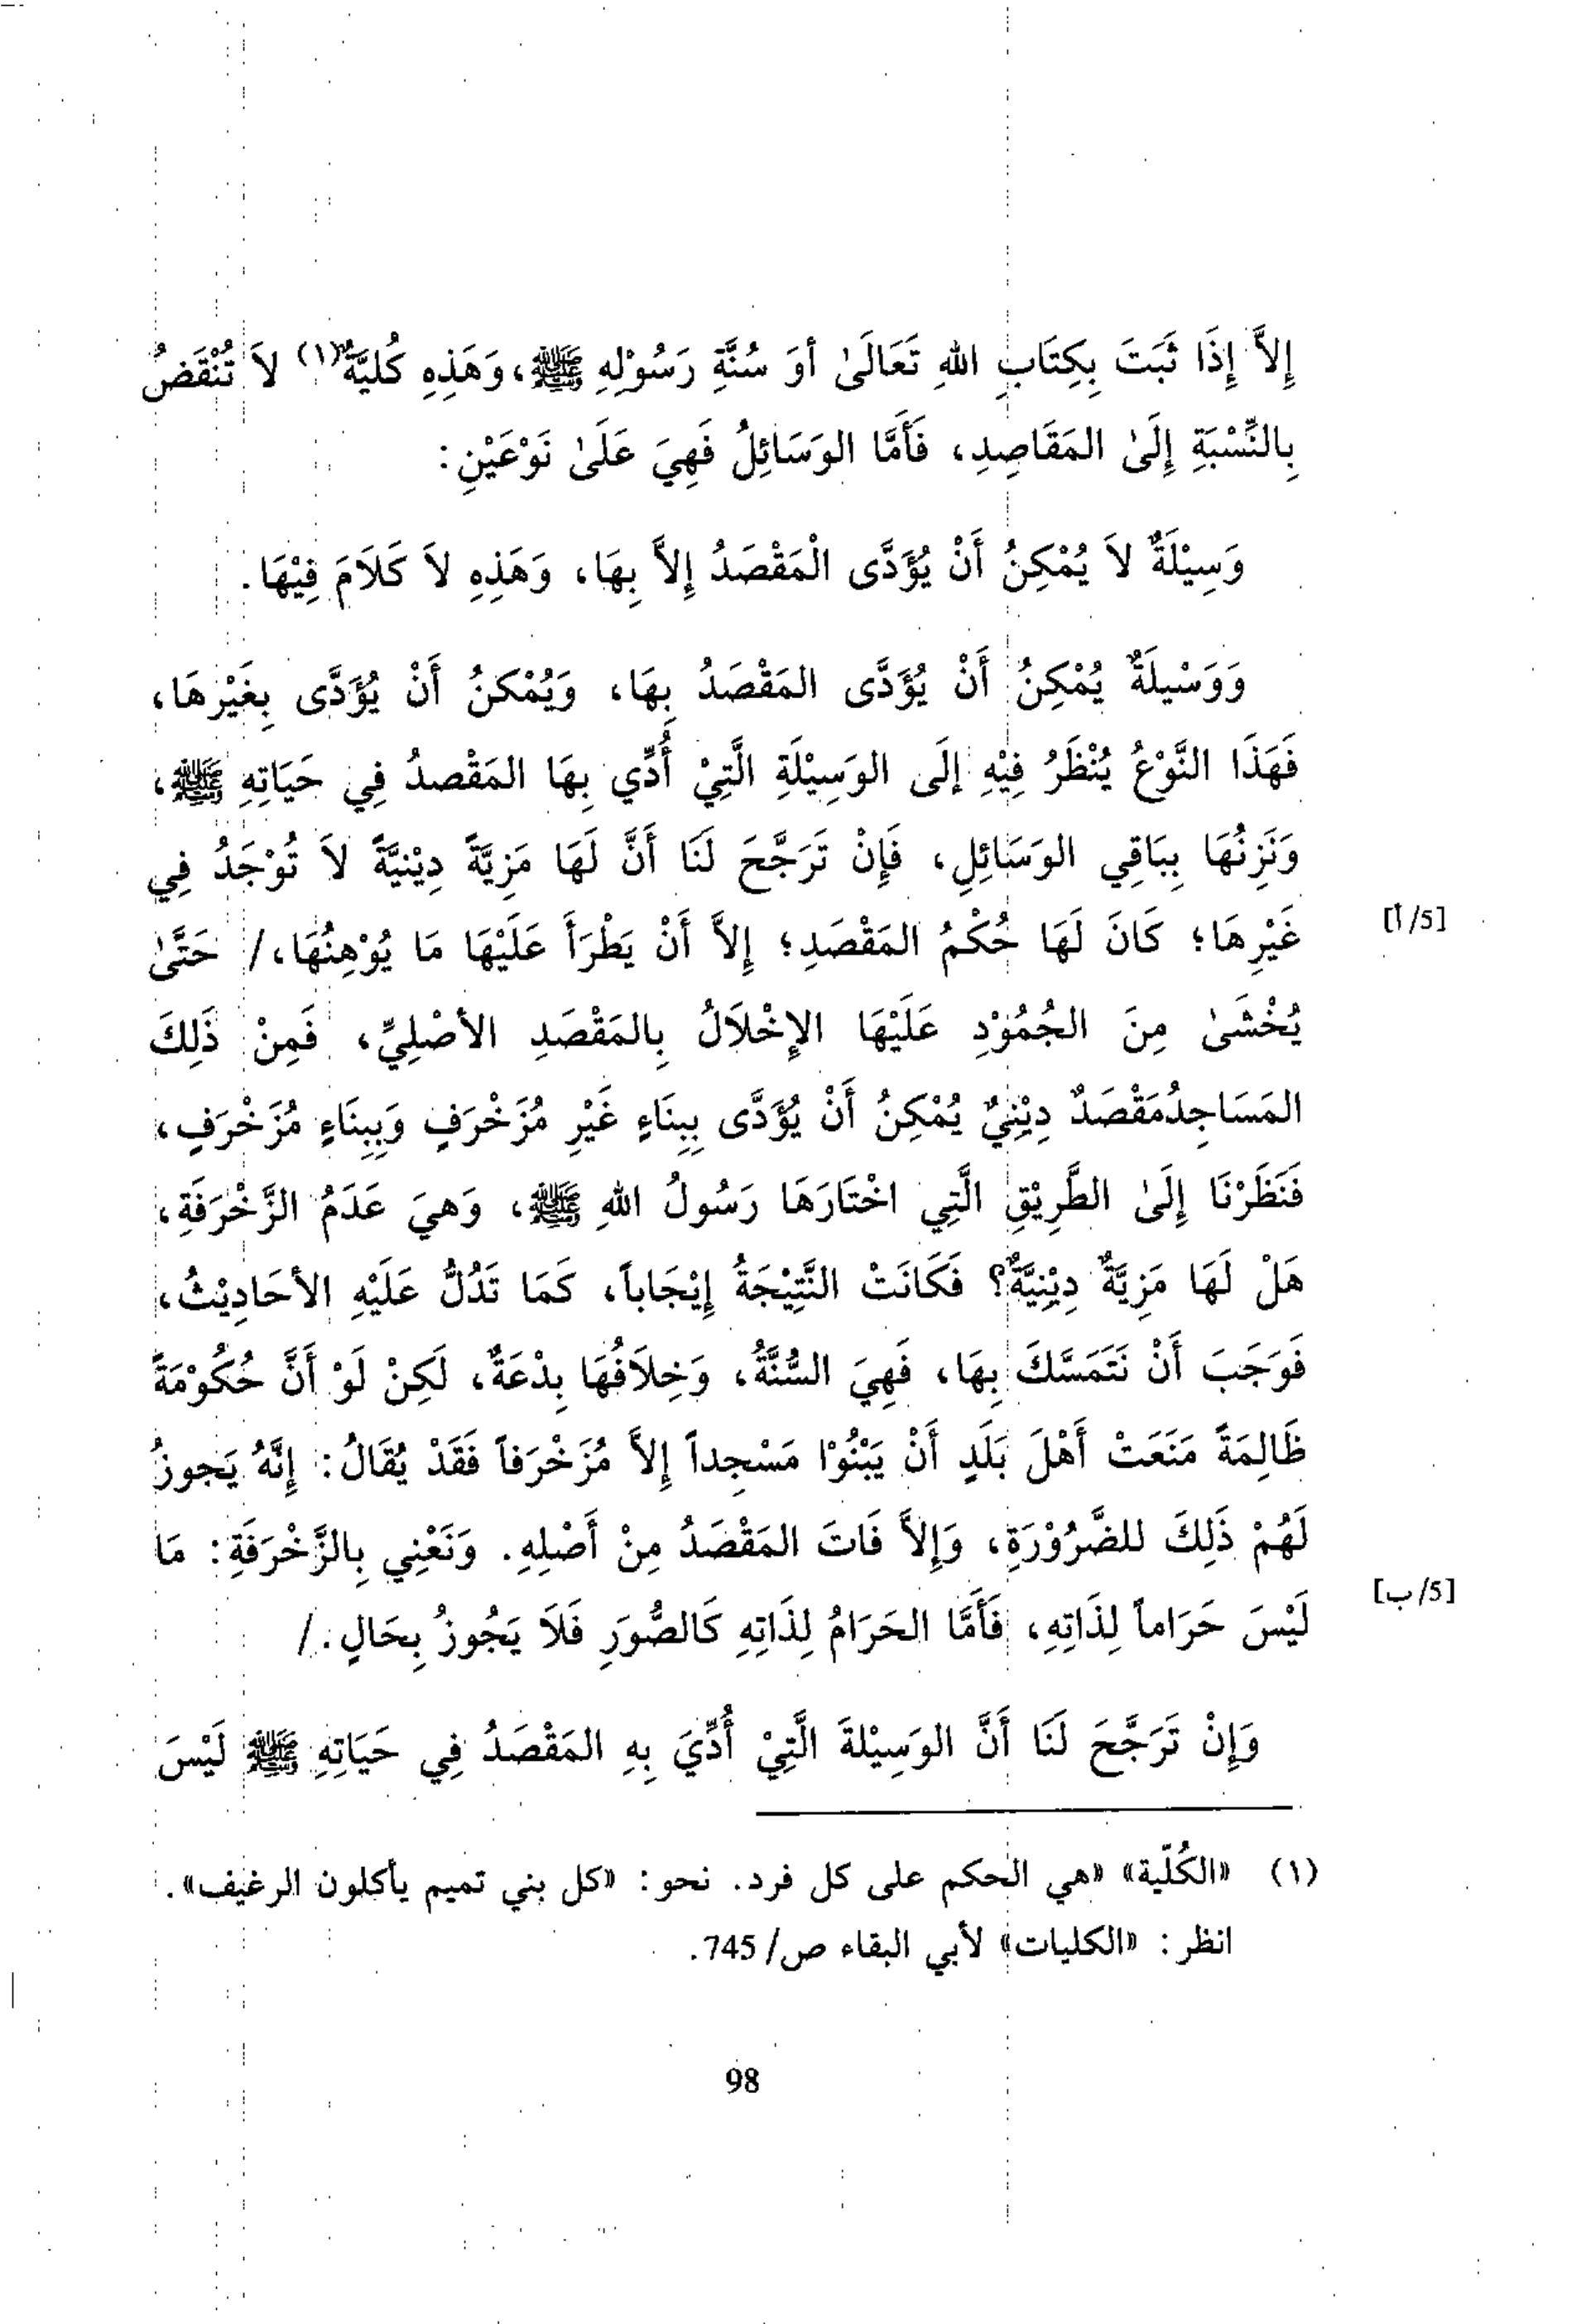 إِلاَّ إِذَا ثَبَتَ بِكِتَابِ اللهِ تَعَالَىٰ أوَ سُنَّةِ رَسُوْلِهِ ﷺ، وَهَذِهِ كُلِيَّةٌ(١) لاَ تُنْقَضُ
بِالنِّسْبَةِ إِلَىٰ المَقَاصِدِ، فَأَمَّا الوَسَائِلُ فَهِيَ عَلَىٰ نَوْعَيْنِ:
وَسِيْلَةٌ لاَ يُمْكِنُ أَنْ يُؤَدَّى الْمَقْصَدُ إِلاَّ بِهَا، وَهَذِهِ لاَ كَلَامَ فِيْهَا.
وَوَسْيلَةٌ يُمْكِنُ أَنْ يُؤَدَّى المَقْصَدُ بِهَا، وَيُمْكنُ أَنْ يُؤَدَّى بِغَيْرِهَا،
فَهَذَا النَّوْعُ يُنْظَرُ فِيْهِ إِلَى الوَسِيْلَةِ الَّتِيْ أُدِّي بِهَا المَقْصدُ فِي حَيَاتِهِ ﷺ،
وَنَزِنُهَا بِبَاقِي الوَسَائِلِ، فَإِنْ تَرَجَّحَ لَنَا أَنَّ لَهَا مَزِيَّةً دِيْنِيَّةً لاَ تُوْجَدُ فِي
غَيْرِهَا؛ كَانَ لَهَا حُكْمُ المَقْصَدِ؛ إِلاَّ أَنْ يَطْرَأَ عَلَيْهَا مَا يُوْهِنُهَا،/ حَتَّىٰ [5/أ]
يُخْشَىٰ مِنَ الجُمُوْدِ عَلَيْهَا الإِخْلَالُ بِالمَقْصَدِ الأصْلِيِّ، فَمِنْ ذَلِكَ
المَسَاجِدُمَقْصَدٌ دِيْنِيٌ يُمْكِنُ أَنْ يُؤَدَّى بِبِنَاءٍ غَيْرِ مُزَخْرَفٍ وَبِبِنَاءٍ مُزَخْرَفٍ،
فَنَظَرْنَا إِلَىٰ الطَّرِيْقِ الَّتِي اخْتَارَهَا رَسُولُ اللهِ ﷺ، وَهيَ عَدَمُ الزَّخْرَفَةِ،
هَلْ لَهَا مَزِيَّةٌ دِيْنِيَّةٌ؟ فَكَانَتْ النَّتِيْجَةُ إِيْجَاباً، كَمَا تَدُلُّ عَلَيْهِ الأحَادِيْثُ،
فَوَجَبَ أَنْ نَتَمَسَّكَ بِهَا، فَهِيَ السُّنَّةُ، وَخِلَافُهَا بِدْعَةٌ، لَكِنْ لَوْ أَنَّ حُكُوْمَةً
ظَالِمَةً مَنَعَتْ أَهْلَ بَلَدٍ أَنْ يَبْنُوْا مَسْجِداً إِلاَّ مُزَخْرَفاً فَقَدْ يُقَالُ: إِنَّهُ يَجوزُ
لَهُمْ ذَلِكَ للضَّرُوْرَةِ، وَإِلاَّ فَاتَ المَقْصَدُ مِنْ أَصْلِهِ. وَنَعْنِي بِالزَّخْرَفَةِ: مَا
لَيْسَ حَرَاماً لِذَاتِهِ، فَأَمَّا الحَرَامُ لِذَاتِهِ كَالصُّوَرِ فَلَا يَجُوزُ بِحَالٍ./ [5/ب]
وَإِنْ تَرَجَّحَ لَنَا أَنَّ الوَسِيْلةَ الَّتِيْ أُدِّيَ بِهِ المَقْصَدُ فِي حَيَاتِهِ ﷺ لَيْسَ
(١) «الكُلّية» «هي الحكم على كل فرد. نحو: «كل بني تميم يأكلون الرغيف».
انظر: «الكليات» لأبي البقاء ص/745.
98